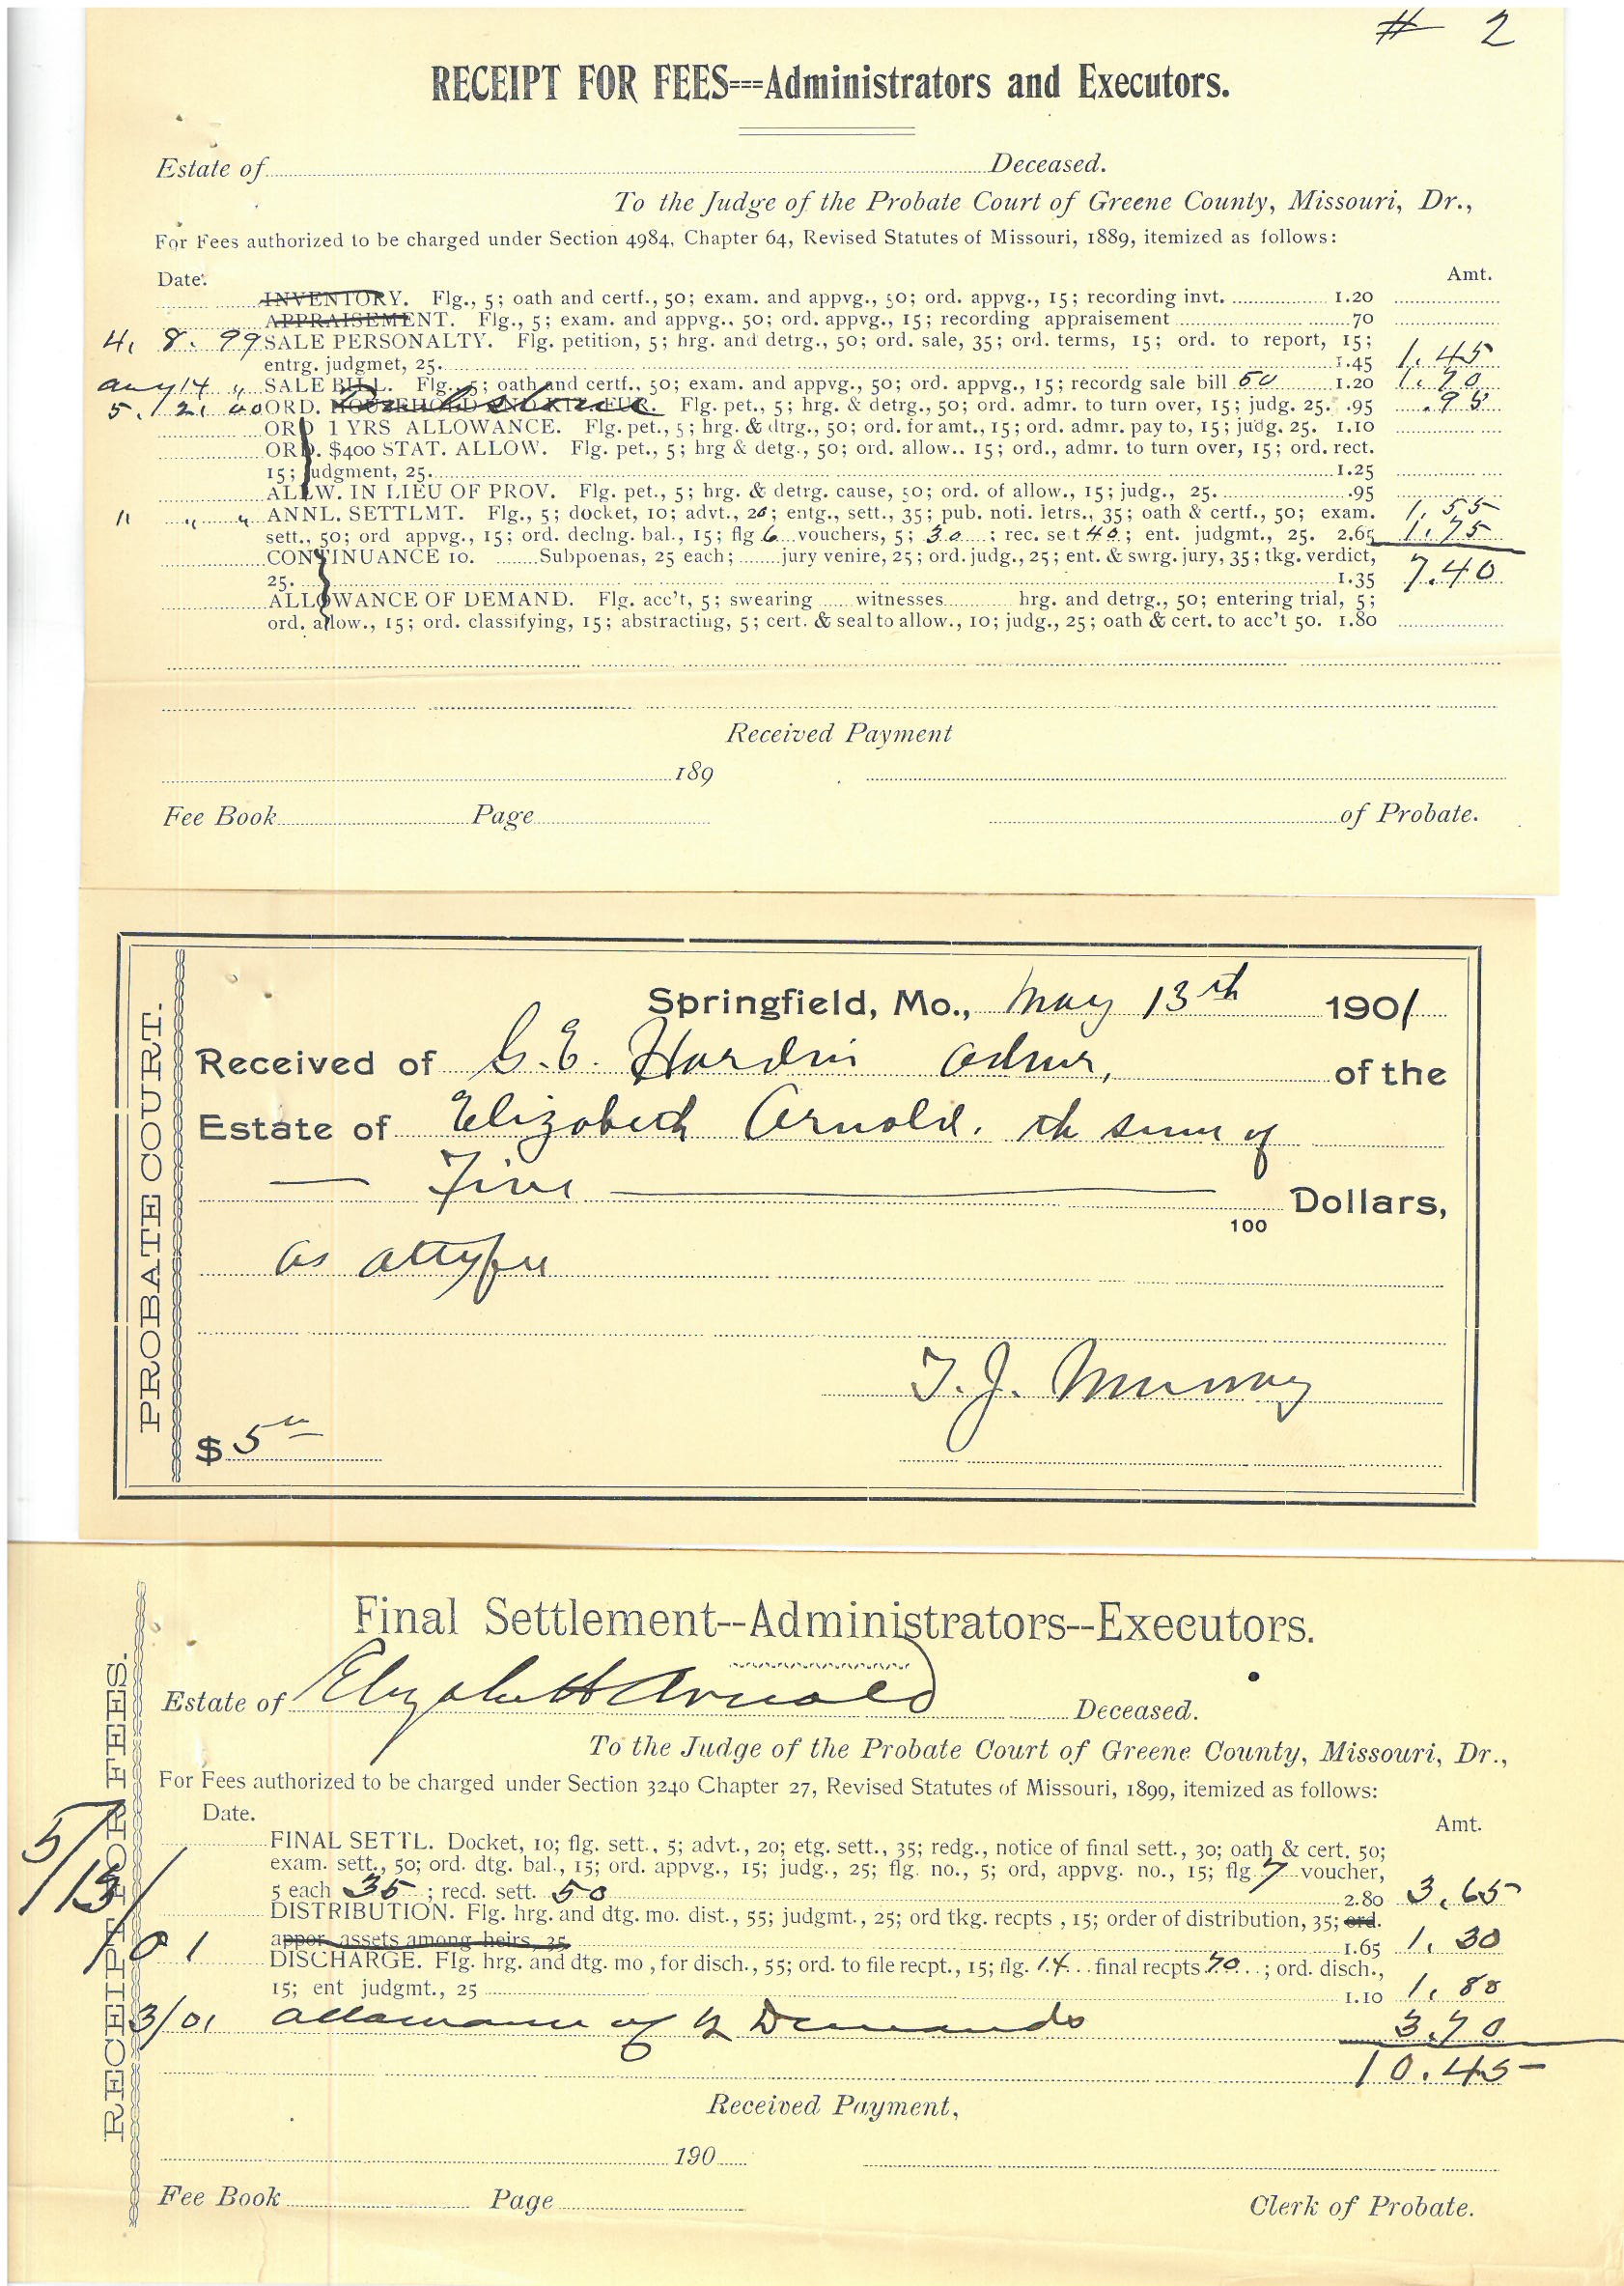 # 2
RECEIPT FOR FEES===Administrators and Executors.
Estate of Deceased.
To the Judge of the Probate Court of Greene County, Missouri, Dr.,
For Fees authorized to be charged under Section 4984, Chapter 64, Revised Statutes of Missouri, 1889, itemized as follows:
Date. Amt.
INVENTORY. Flg., 5; oath and certf., 50; exam. and appvg., 50; ord. appvg., 15; recording invt. 1.20
APPRAISEMENT. Flg., 5; exam. and appvg., 50; ord. appvg., 15; recording appraisement 70
4. 8. 99 SALE PERSONALTY. Flg. petition, 5; hrg. and detrg., 50; ord. sale, 35; ord. terms, 15; ord. to report, 15;
entrg. judgmet, 25. 1.45 1.45
14 " SALE BILL. Flg., 5; oath and certf., 50; exam. and appvg., 50; ord. appvg., 15; recordg sale bill 50 1.20 1.70
5. 12. 00 ORD. HOUSEHOLD AND KIT. FUR. Flg. pet., 5; hrg. & detrg., 50; ord. admr. to turn over, 15; judg. 25. .95 .95
ORD 1 YRS ALLOWANCE. Flg. pet., 5; hrg. & dtrg., 50; ord. for amt., 15; ord. admr. pay to, 15; judg. 25. 1.10
ORD. $400 STAT. ALLOW. Flg. pet., 5; hrg & detg., 50; ord. allow.. 15; ord., admr. to turn over, 15; ord. rect.
15; judgment, 25. 1.25
ALLW. IN LIEU OF PROV. Flg. pet., 5; hrg. & detrg. cause, 50; ord. of allow., 15; judg., 25. .95
" " " ANNL. SETTLMT. Flg., 5; docket, 10; advt., 20; entg., sett., 35; pub. noti. letrs., 35; oath & certf., 50; exam. 1.55
sett., 50; ord appvg., 15; ord. declng. bal., 15; flg 6 vouchers, 5; 30; rec. set 40; ent. judgmt., 25. 2.65 1.75
CONTINUANCE 10. Subpoenas, 25 each; jury venire, 25; ord. judg., 25; ent. & swrg. jury, 35; tkg. verdict,
25. 1.35 7.40
ALLOWANCE OF DEMAND. Flg. acc't, 5; swearing witnesses hrg. and detrg., 50; entering trial, 5;
ord. allow., 15; ord. classifying, 15; abstracting, 5; cert. & seal to allow., 10; judg., 25; oath & cert. to acc't 50. 1.80
Received Payment
189
Fee Book Page of Probate.
PROBATE COURT.
Springfield, Mo., May 13th 1901
Received of G.E. Hardin Admr, of the
Estate of Elizabeth Arnold. th sum of
— Five — Dollars,
100
as atty fee
T.J. Murray
$ 5
RECEIPT FOR FEES.
Final Settlement--Administrators--Executors.
Estate of Elizabeth Arnold Deceased.
To the Judge of the Probate Court of Greene County, Missouri, Dr.,
For Fees authorized to be charged under Section 3240 Chapter 27, Revised Statutes of Missouri, 1899, itemized as follows:
Date. Amt.
5/13/01 FINAL SETTL. Docket, 10; flg. sett., 5; advt., 20; etg. sett., 35; redg., notice of final sett., 30; oath & cert. 50;
exam. sett., 50; ord. dtg. bal., 15; ord. appvg., 15; judg., 25; flg. no., 5; ord, appvg. no., 15; flg. 7 voucher,
5 each 35; recd. sett. 50 2.80 3.65
DISTRIBUTION. Flg. hrg. and dtg. mo. dist., 55; judgmt., 25; ord tkg. recpts, 15; order of distribution, 35; ord.
appor. assets among heirs, 35 1.65 1.30
DISCHARGE. Flg. hrg. and dtg. mo, for disch., 55; ord. to file recpt., 15; flg. 14 final recpts 70; ord. disch.,
15; ent judgmt., 25 1.10 1.80
3/01 allowance of 2 Demands 3.70
10.45
Received Payment,
190
Fee Book Page Clerk of Probate.